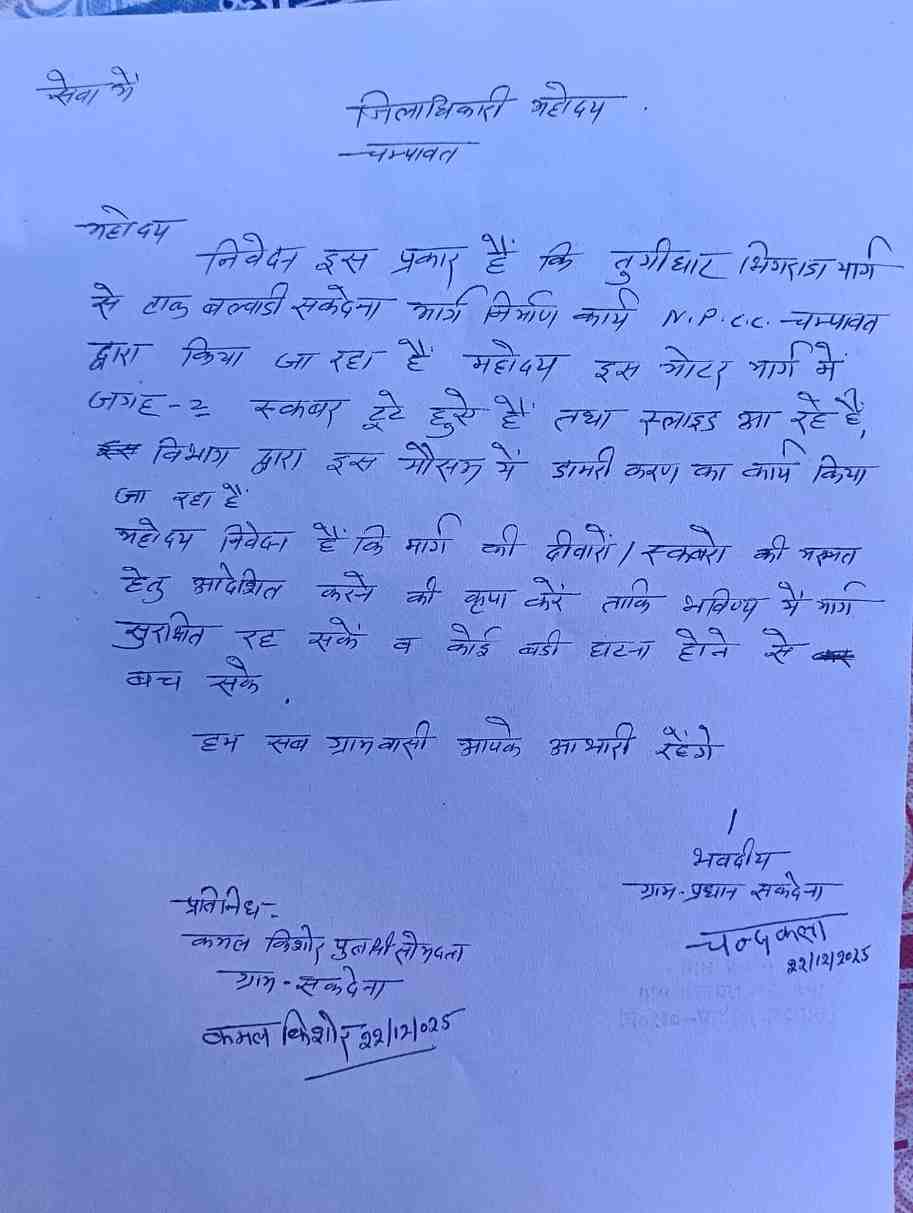 सेवा में
जिलाधिकारी महोदय .
चम्पावत
महोदय
निवेदन इस प्रकार हैं कि तुगीघाट भिंगराडा मार्ग
से टाक बल्वाडी सकदेना मार्ग निर्माण कार्य N.P.C.C. चम्पावत
द्वारा किया जा रहा हैं महोदय इस मोटर मार्ग में
जगह-२ स्कबर टूटे हुऐ हैं तथा स्लाइड आ रहे हैं,
विभाग द्वारा इस मौसम में डामरी करण का कार्य किया
जा रहा हैं
महोदय निवेदन हैं कि मार्ग की दीवारों/स्कबरो की मरम्मत
हेतु आदेशित करने की कृपा करें ताकि भविष्य में मार्ग
सुरक्षित रह सकें व कोई बडी घटना होने से
बच सके .
हम सब ग्रामवासी आपके आभारी रहेंगे
भवदीय
ग्राम-प्रधान सकदेना
चन्द्रकला
22/12/2025
प्रतिनिधि-
कमल किशोर पुत्र श्री सोमदत्त
ग्राम-सकदेना
कमल किशोर 22/12/025